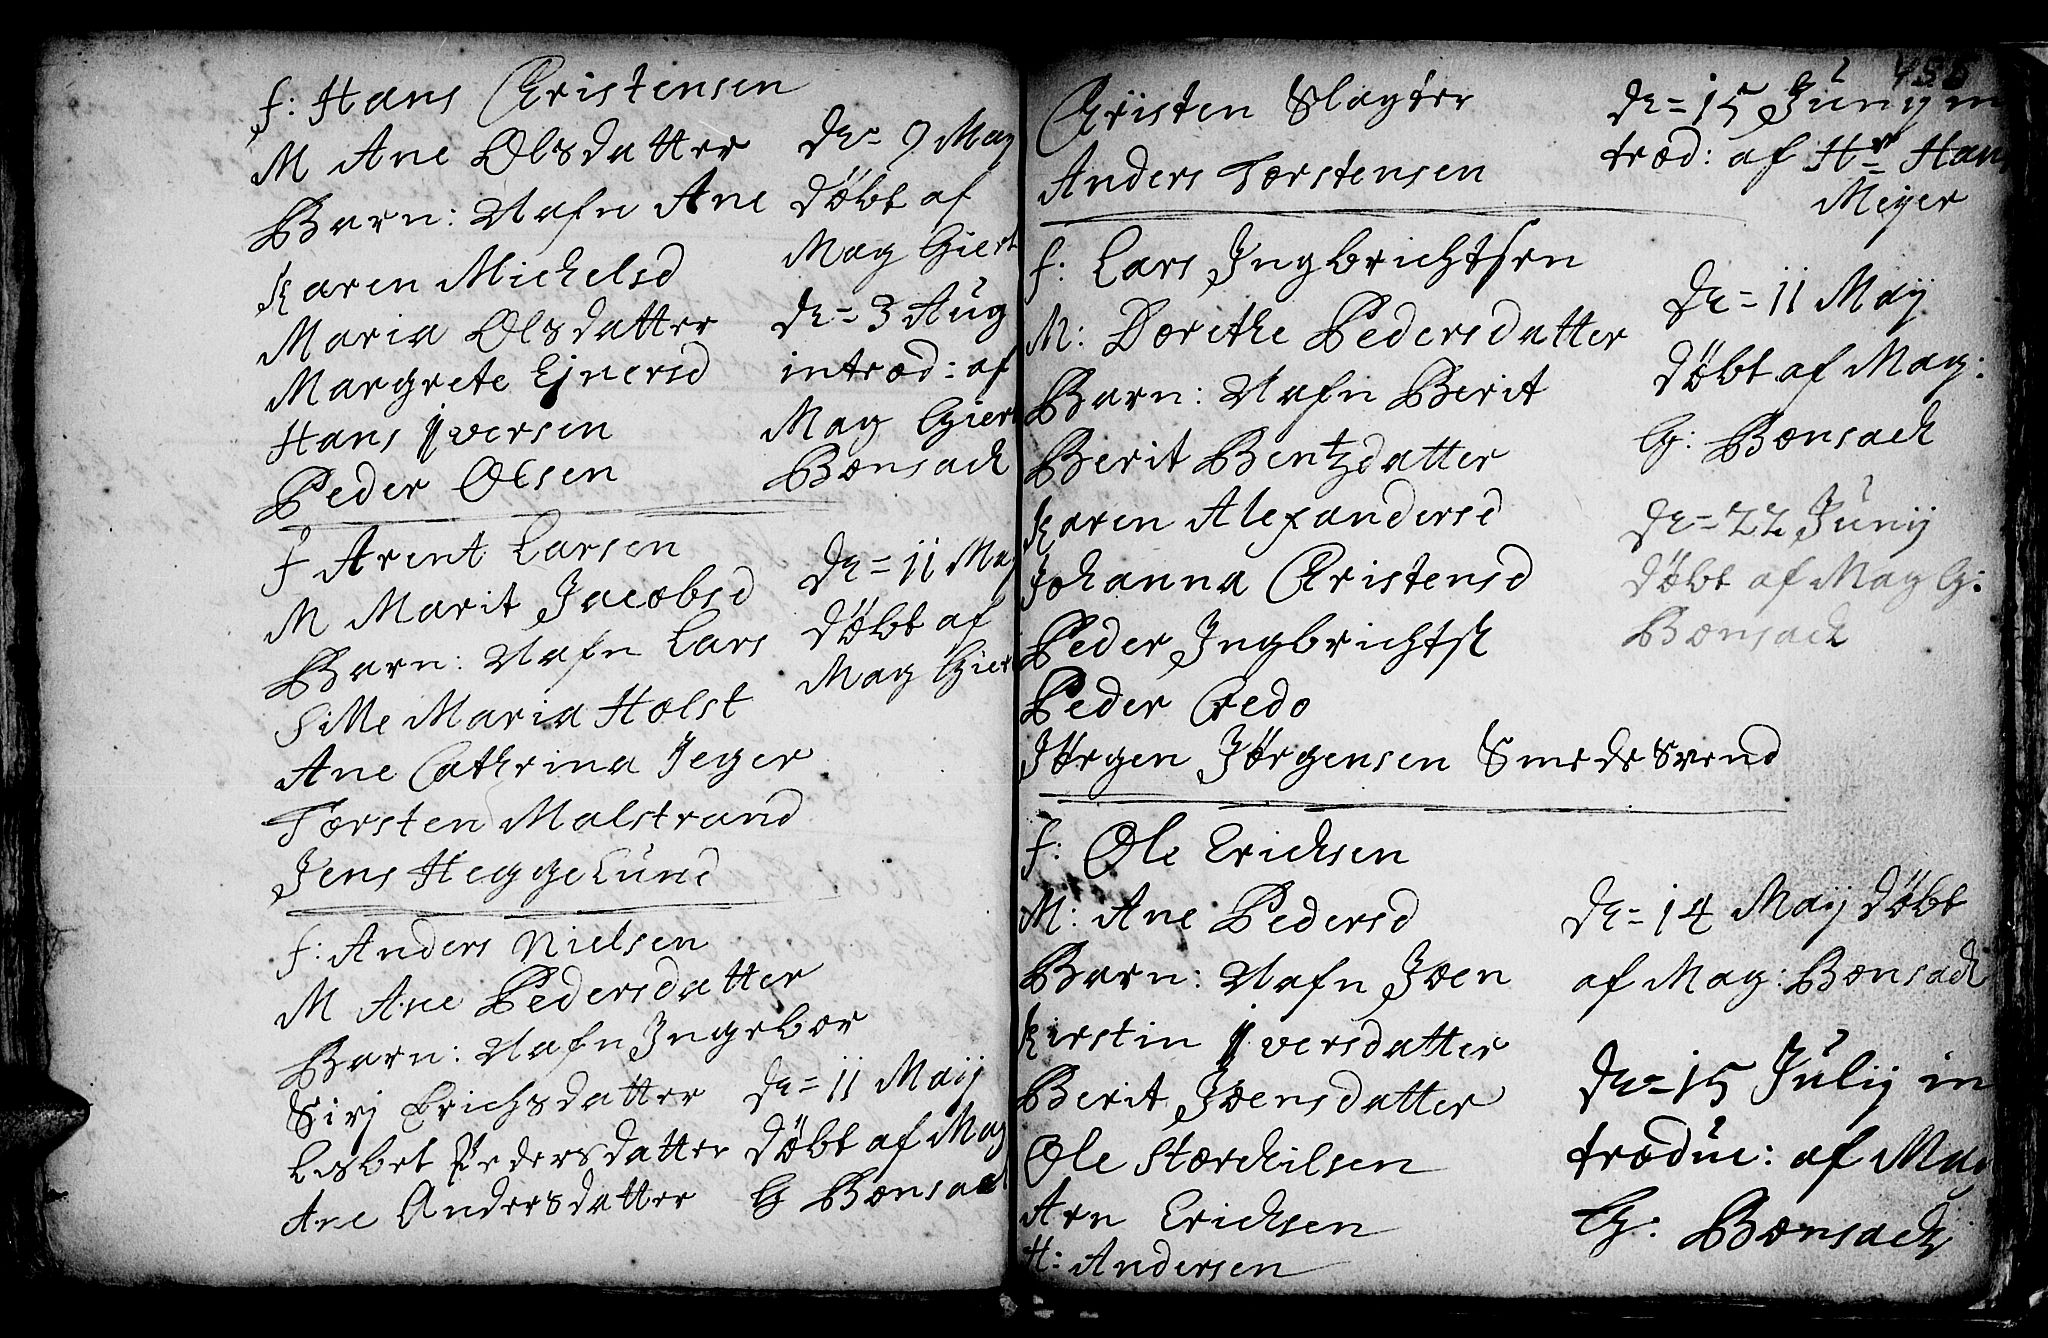 f: Hans Christensen
M Ane Olsdatter
Barn: Nafn Ane
Karen Michelsd
Maria Olsdatter
Margrete Ejnersd
Hans Iversen
Peder Olsen
de= 9 May
døbt af
Mag Giert
de= 3 Aug
introd: af
Mag Giert
Bonsach
f Arent Larsen
M Marit Jacobsd
Barn: Nafn Lars
Sille Maria Holst
Ane Cathrina Jeger
Torsten Malstrand
Jens Heggelund
de= 11 May
døbt af
Mag Giert
f: Anders Nielsen
M Ane Pedersdatter
Barn: Nafn Ingebor
Sirj Erichsdatter
Lisbet Pedersdatter
Ane Andersdatter
de= 11 Maij
døbt af Mag
G Bonsach
455
Christen Slagter
Anders Torstensen
de= 15 Junij in
trod: af Hr Hans
Mejer
f: Lars Ingbrichtsen
M: Dorethe Pedersdatter
Barn: Nafn Berit
Berit Bentzdatter
Karen Alexandersd
Johanna Christensd
Peder Ingbrichts
Peder Credo
Jørgen Jørgensen Smede Svend
de= 11 Maij
døbt af Mag:
G: Bonsach
de= 22 Junij
døbt af Mag G:
Bonsach
f: Ole Erichsen
M: Ane Pedersd
Barn: Nafn Joen
Kirstin Iversdatter
Berit Joensdatter
Ole Storchilsen
Arn Erichsen
H: Andersen
de= 14 Maij døbt
af Mag: Bonsach
de= 15 Julij in
troduc: af Mag
G: Bonsach